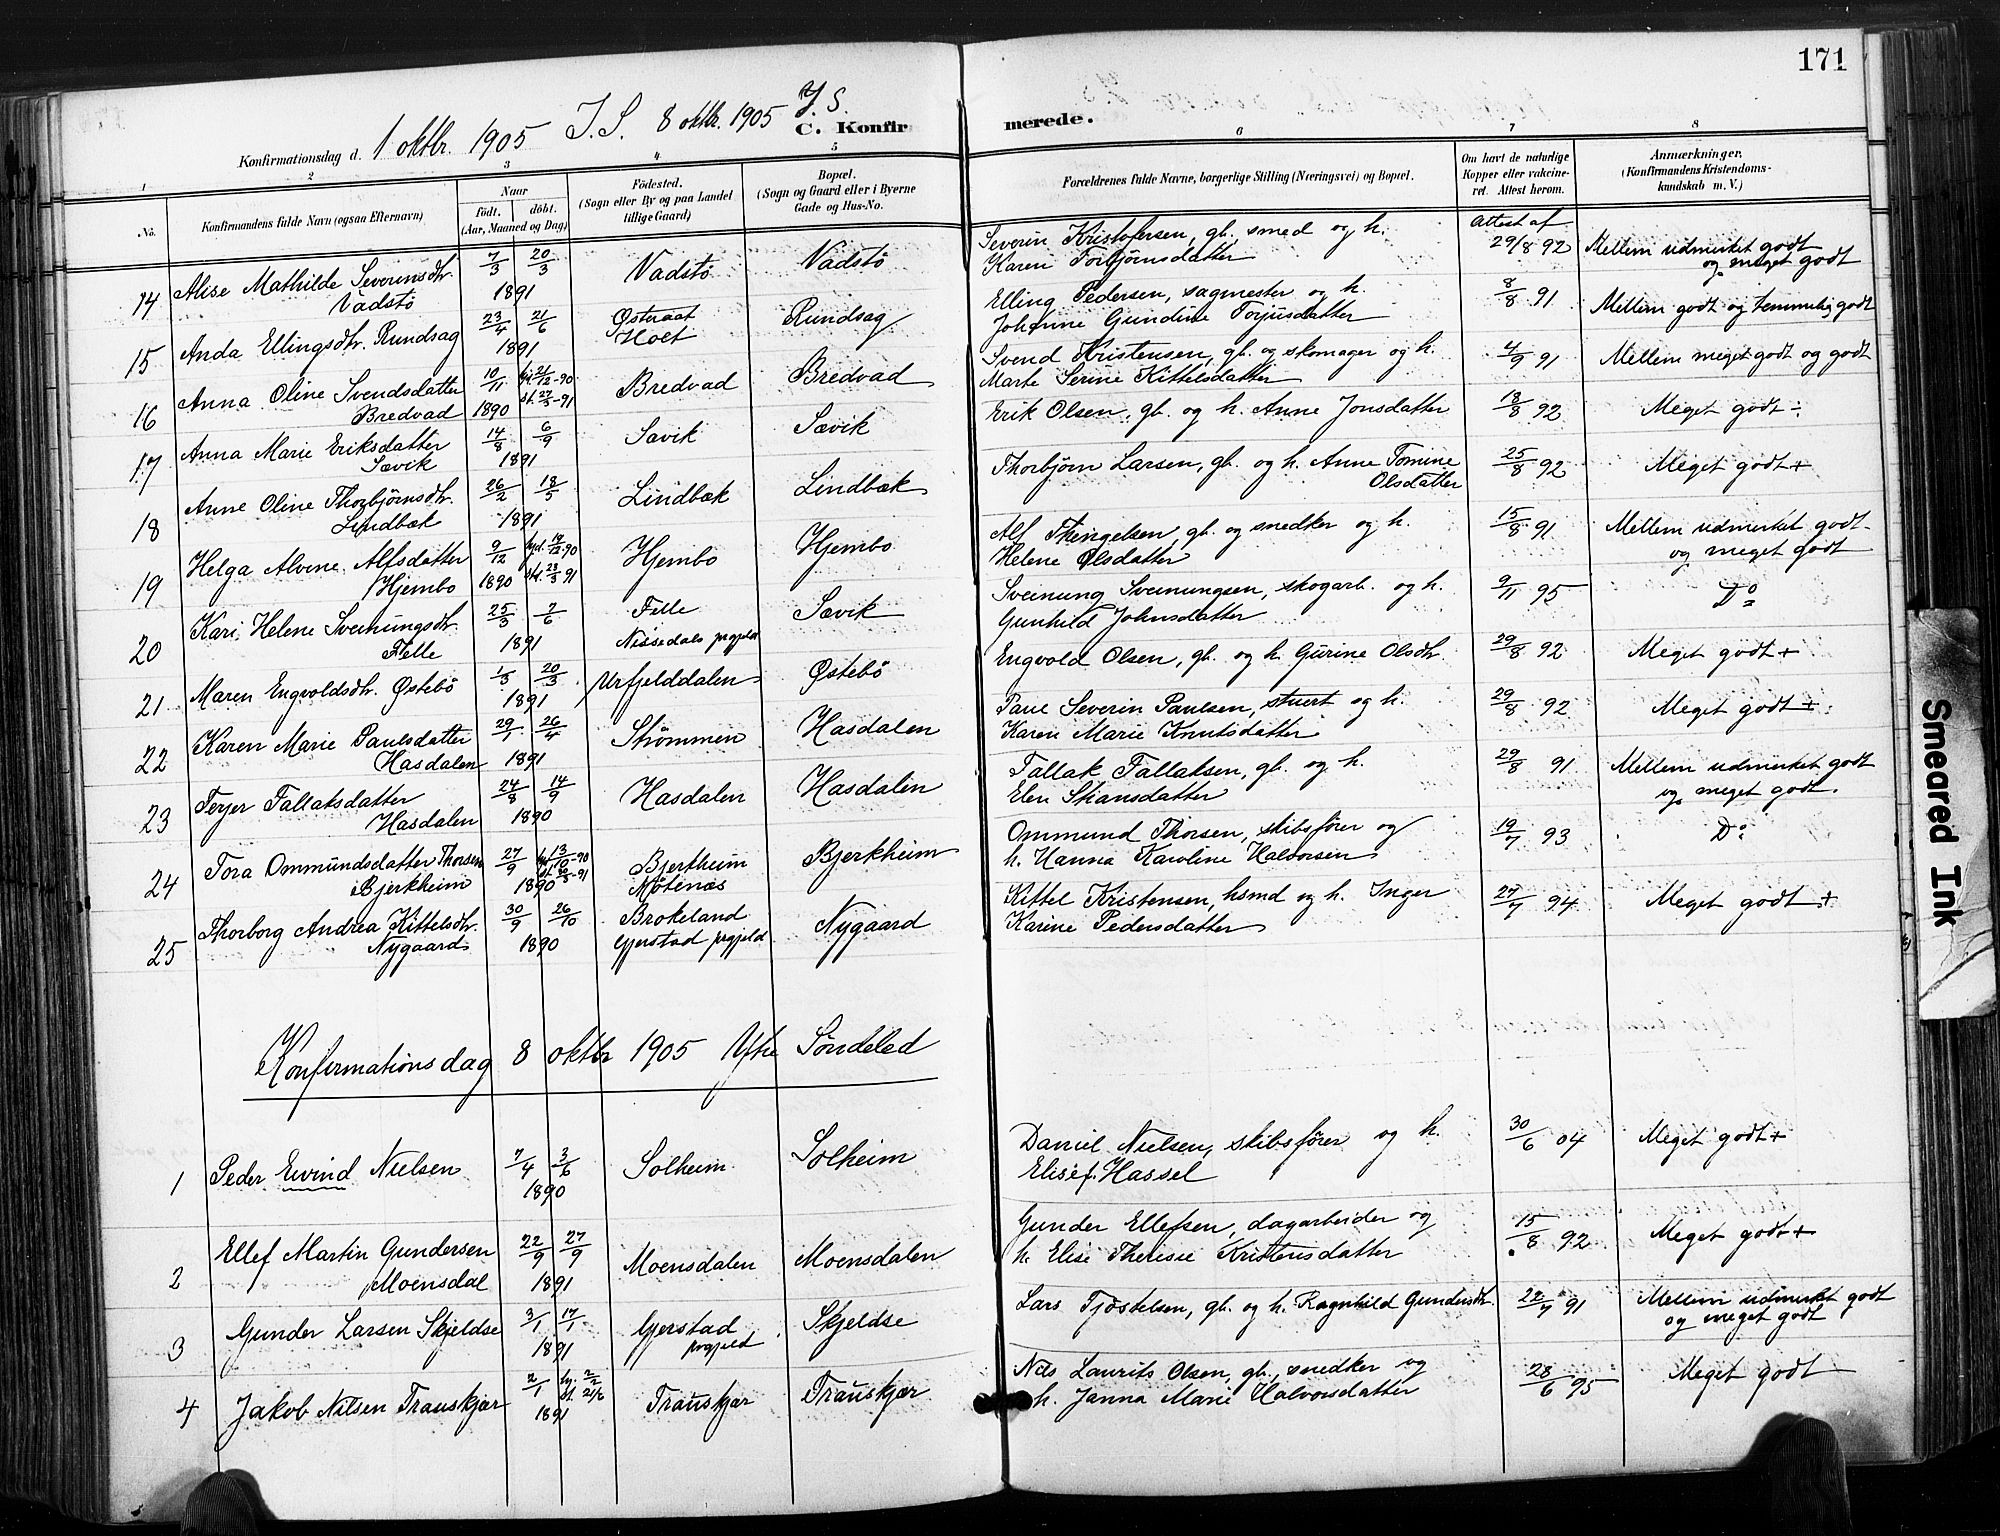 171
Y. S.
1 oktbr. 1905 I. S. 8 oktbr. 1905
C. Konfirmerede.
Konfirmationsdag d.
1 2 3 4 5 6 7 8
No. Konfirmandens fulde Navn (ogsaa Efternavn) Naar født. døbt. (Aar, Maaned og Dag) Födested. (Sogn eller By og paa Landet tillige Gaard) Bopæl. (Sogn og Gaard eller i Byerne Gade og Hus-No. Forældrenes fulde Navne, borgerlige Stilling (Næringsvei) og Bopæl. Om havt de naturlige Kopper eller vakcineret. Attest herom. Anmærkninger. (Konfirmandens Kristendomskundskab m. V.)
14 Alise Mathilde Severinsdtr. Vadstö 7/3 20/3 1891 Vadstö Vadstö Severin Kristofersen, gb. smed og h. Karen Torbjørnsdatter Attest af 29/8 92 Mellem udmerket godt og meget godt
15 Anda Ellingsdtr. Rundsag 23/4 21/6 1891 Østraat Holt Rundsag Elling Pedersen, sagmester og h. Johanne Gundine Torjusdatter 8/8 91 Mellem godt og temmelig godt
16 Anna Oline Svendsdatter Bredvad 10/11 1890 hj. 21/12-90 st. 27/3-91 Bredvad Bredvad Svend Kristensen, gb. og skomager og h. Marte Serine Kittelsdatter 4/9 91 Mellem meget godt og godt
17 Anna Marie Eriksdatter Sævik 14/8 6/9 1891 Sævik Sævik Erik Olsen, gb. og h. Anne Jonsdatter 18/8 92 Meget godt ÷
18 Anne Oline Thorbjørnsdtr. Lindbæk 26/2 18/5 1891 Lindbæk Lindbæk Thorbjørn Larsen, gb. og h. Anne Tomine Olsdatter 25/8 92 Meget godt +
19 Helga Alvine Alfsdatter Hjembo 9/12 1890 hjd. 14/12-90 st. 28/3 91 Hjembo Hjembo Alf Thengelsen, gb. og snedker og h. Helene Olsdatter 15/8 91 Mellem udmerket godt og meget godt
20 Kari Helene Sveinungsdtr. Felle 25/3 7/6 1891 Felle Nissedals prgjeld Sævik Sveinung Sveinungsen, skogarb. og h. Gunhild Johnsdatter 9/11 95 Do
21 Maren Engvoldsdtr. Østebö 1/3 20/3 1891 Urfjelddalen Østebö Engvold Olsen, gb. og h. Gurine Olsdtr. 29/8 92 Meget godt +
22 Karen Marie Paulsdatter Hasdalen 29/1 26/4 1891 Strömmen Hasdalen Paul Severin Paulsen, stuert og h. Karen Marie Knutsdatter 29/8 92 Meget godt +
23 Terjer Tallaksdatter Hasdalen 24/8 14/9 1890 Hasdalen Hasdalen Tallak Tallaksen, gb. og h. Elen Stiansdatter 29/8 91 Mellem udmerket godt og meget godt.
24 Tora Ommundsdatter Thorsen Bjerkheim 27/9 1890 Bjerkheim Møtenæs Bjerkheim Ommund Thorsen, skibsförer og h. Hanna Karoline Halvorsen 19/7 93 Do
25 Thorborg Andrea Kittelsdtr. Nygaard 30/9 26/10 1890 Brokeland Gjerstad prgjeld Nygaard Kittel Kristensen, hsmd og h. Inger Karine Pedersdatter 27/7 94 Meget godt +
Konfirmationsdag 8 oktbr 1905 Ytre Söndeled
1 Peder Eivind Nielsen 7/4 3/6 1890 Solheim Solheim Daniel Nielsen, skibsförer og h. Elisef. Hassel 30/6 04 Meget godt +
2 Ellef Martin Gundersen Moensdal 22/9 27/9 1891 Moensdalen Moensdalen Gunder Ellefsen, dagarbeider og h. Elise Theresie Kristensdatter 15/8 92 Meget godt +
3 Gunder Larsen Skjeldse 3/1 17/1 1891 Gjerstad prgjeld Skjeldse Lars Tjöstelsen, gb. og h. Ragnhild Gundersdtr. 22/7 91 Mellem udmerket godt og meget godt
4 Jakob Nilsen Trauskjær 2/1 1891 hj. 2/2 st. 21/6 Trauskjær Trauskjær Nils Laurits Olsen, gb., snedker og h. Janna Marie Halvorsdatter 28/6 95 Meget godt
Smeared Ink